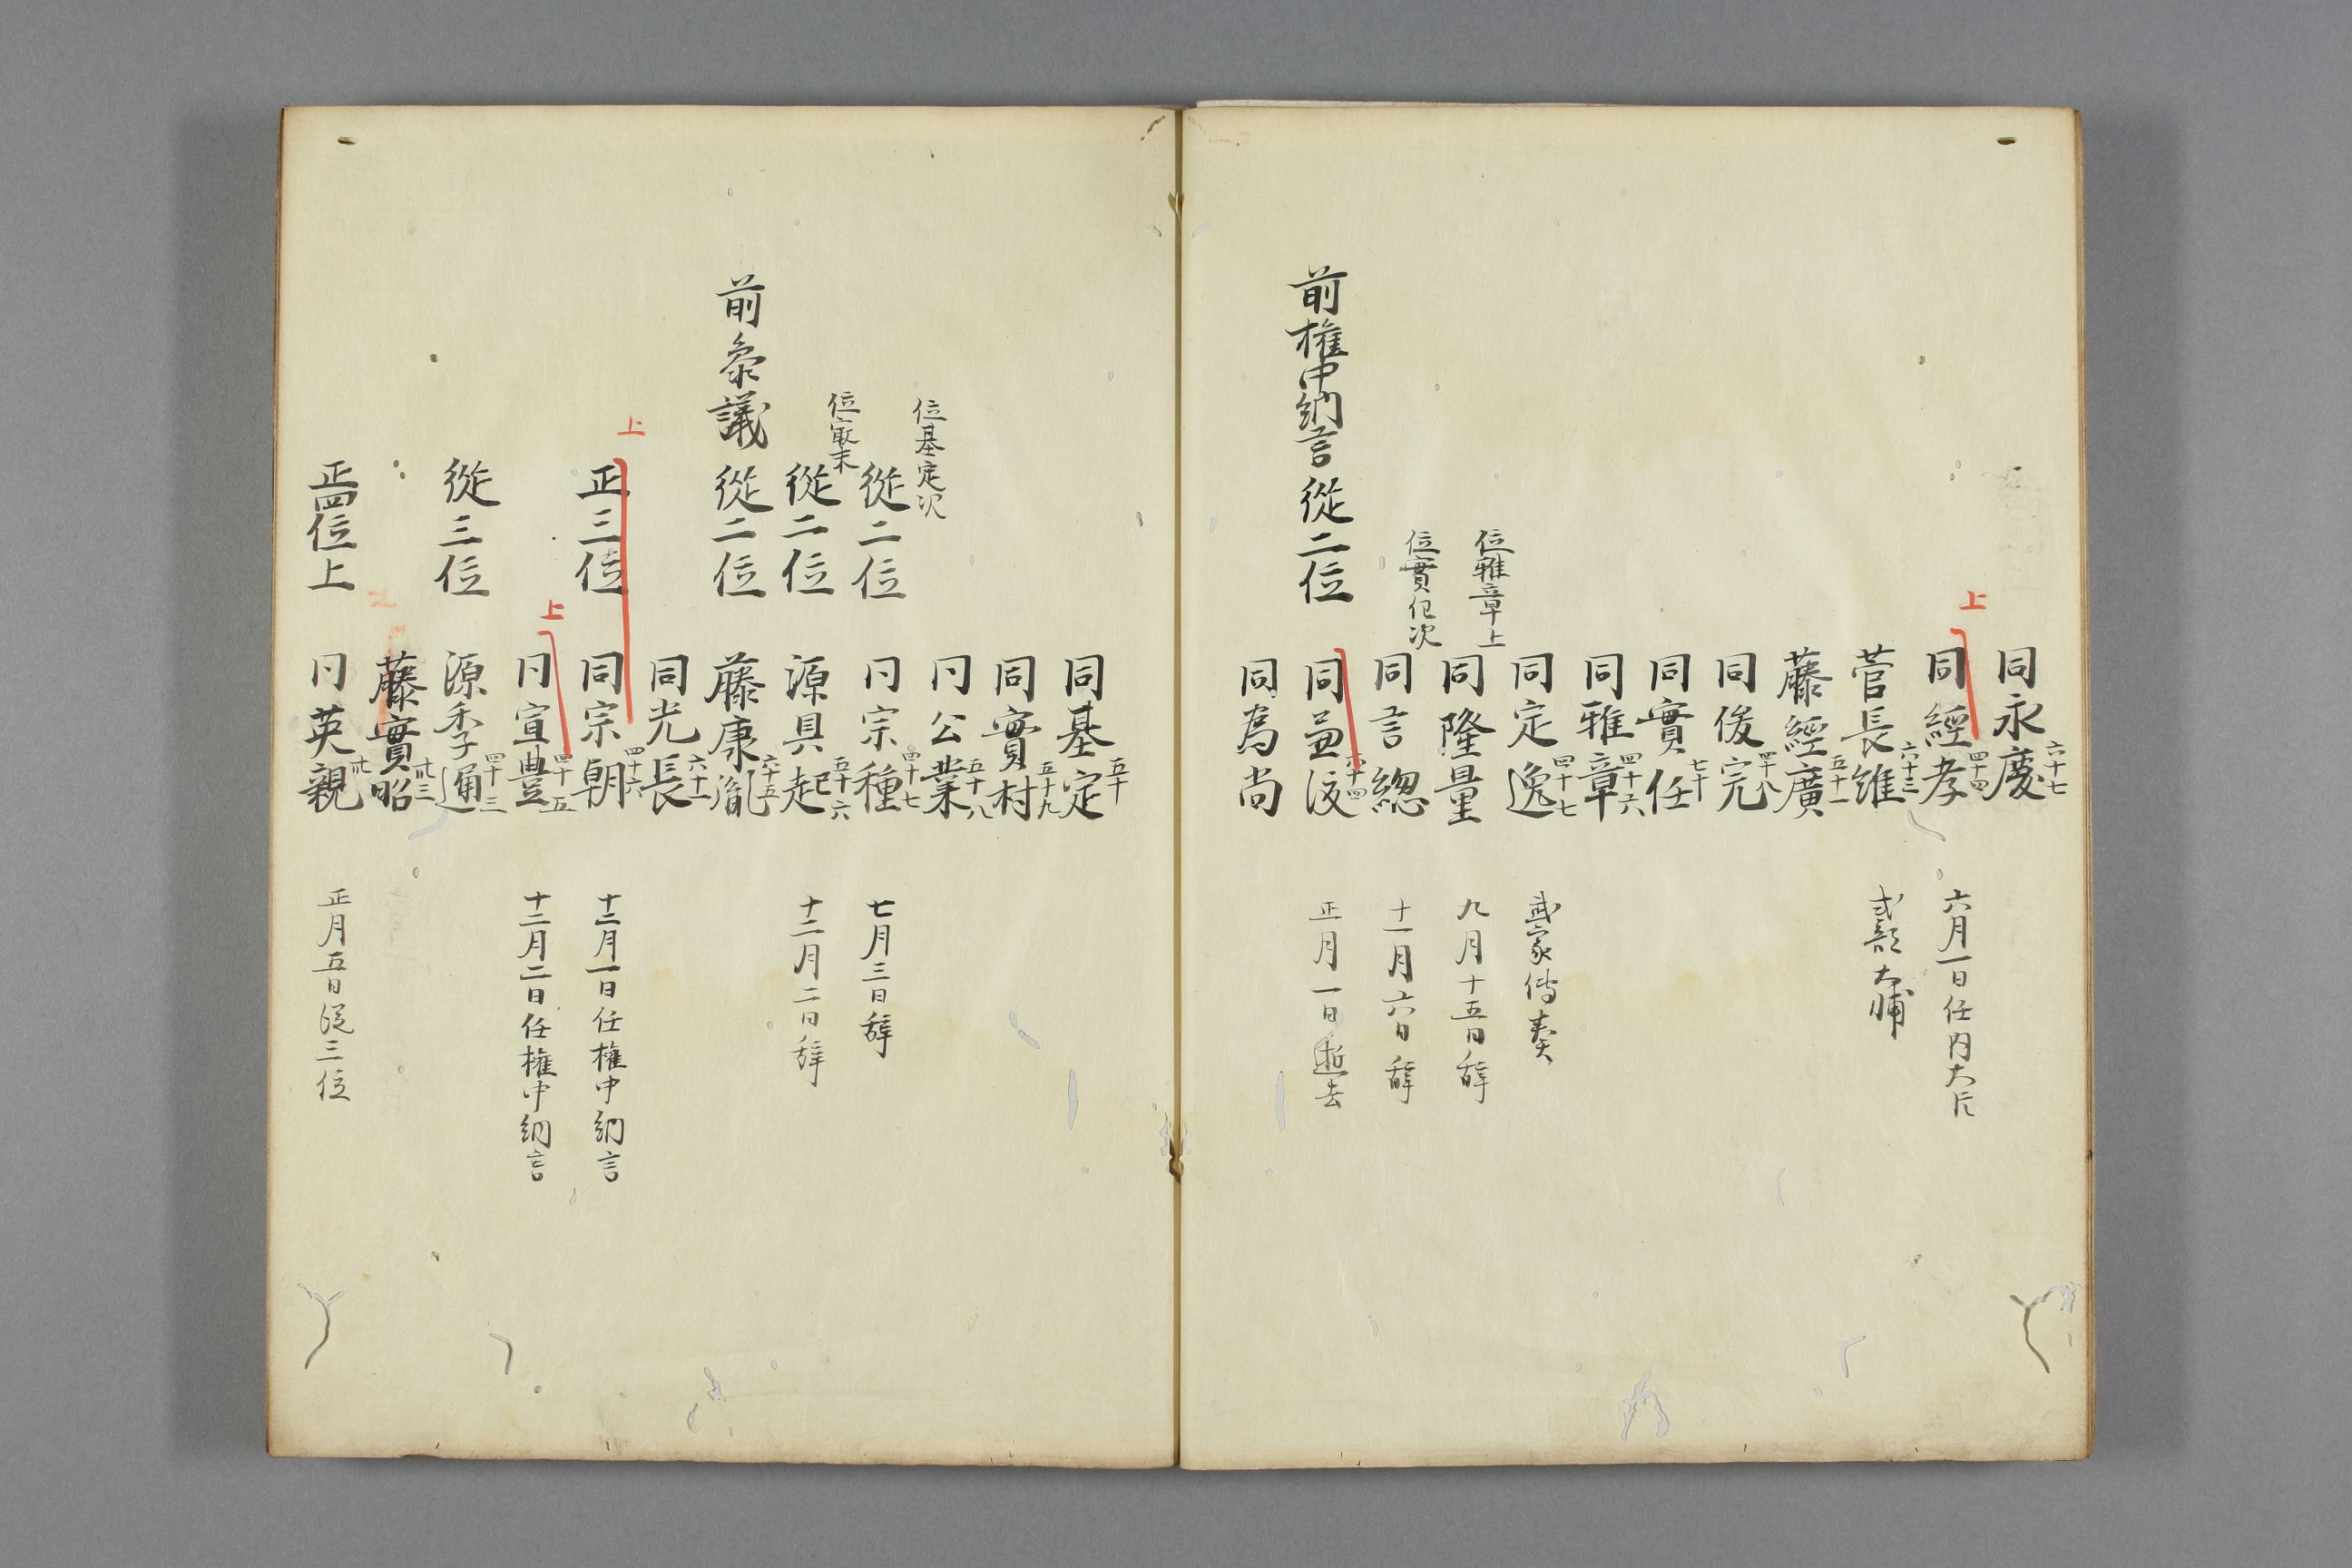 同永慶 六十七
上 同經孝 四十四 六月一日任内大臣
菅長維 六十三 式部大輔
藤經廣 五十一
同俊完 四十八
同實任 七十
同雅章 四十六
同定逸 四十七 武家傳奏
位雅章上 同隆量 九月十五日辞
位實起次 同言總 十一月六日辞
前權中納言 從二位 同益 十四 正月一日逝去
同為尚
同基定 五十
同實村 五十九
同公業 五十八
位基定次 從二位 同宗種 四十七 七月三日辞
位最末 從二位 源具起 五十六 十二月二日辞
前參議 從二位 藤康胤 六十五
同光長 六十一
上 正三位 同宗朝 四十六 十二月一日任權中納言
上 同宣豊 四十五 十二月二日任權中納言
從三位 源季通 四十三
藤實昭 卅三
正四位上 同英親 卅 正月五日從三位